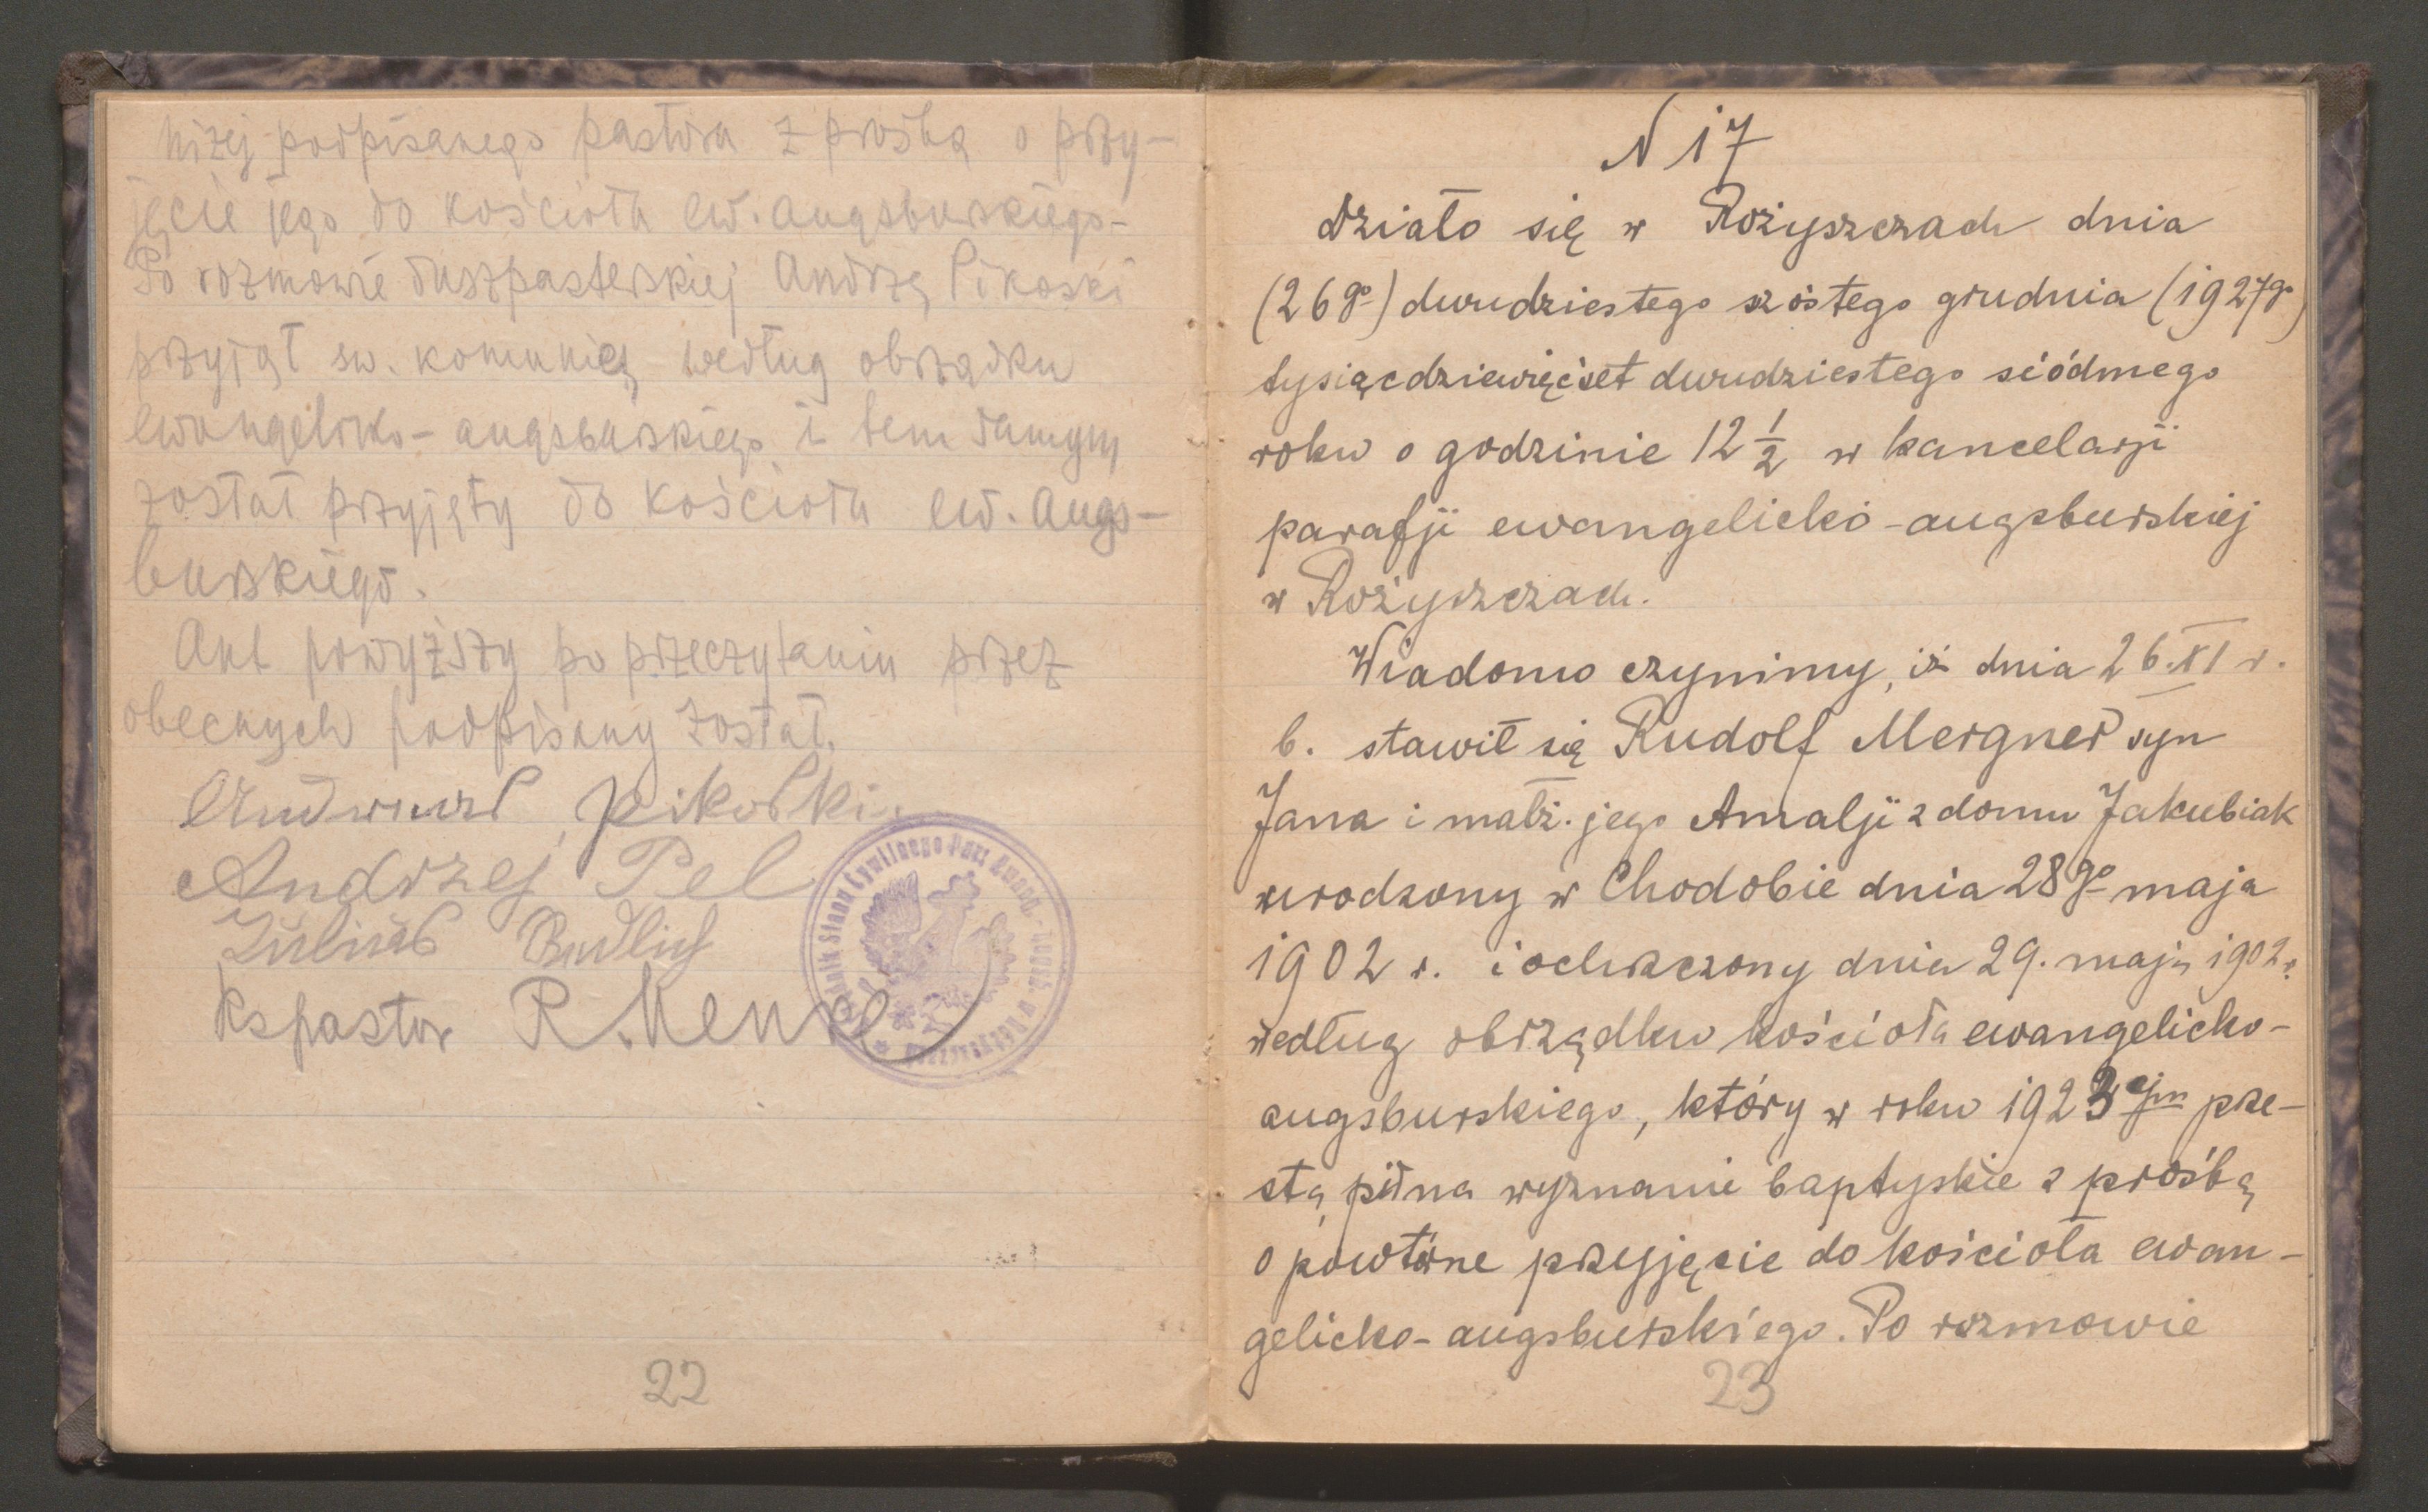 niżej podpisanego pastora z prośbą o przy-
jęcie jego do kościoła ew. augsburskiego-
Po rozmowie duszpasterskiej Andrzej Pikoski
przyjął św. komunię według obrządku
ewangelicko-augsburskiego i tem samym
został przyjęty do kościoła ew. augs-
burskiego.
Akt powyższy po przeczytaniu przez
obecnych podpisany został.
Pikoski
Andrzej Pel
Julius
Ks pastor R. Kenze
Stanu Cywilnego Par. Ewang.-Augsb. w Rożyszczach
22
N 17
Działo się w Rożyszczach dnia
(26go) dwudziestego szóstego grudnia (1927go)
tysiącdziewięćset dwudziestego siódmego
roku o godzinie 12 1/2 w kancelarji
parafji ewangelicko-augsburskiej
w Rożyszczach.
Wiadomo czynimy, iż dnia 26.XI r.
b. stawił się Rudolf Mergner syn
Jana i małż. jego Amalji z domu Jakubiak
urodzony w Chodobie dnia 28go maja
1902 r. i ochrzczony dnia 29. maja 1902 r.
według obrządku kościoła ewangelicko-
augsburskiego, który w roku 1923ejm prze-
stąpił na wyznanie baptyskie z prośbą
o powtórne przyjęcie do kościoła ewan-
gelicko-augsburskiego. Po rozmowie
23